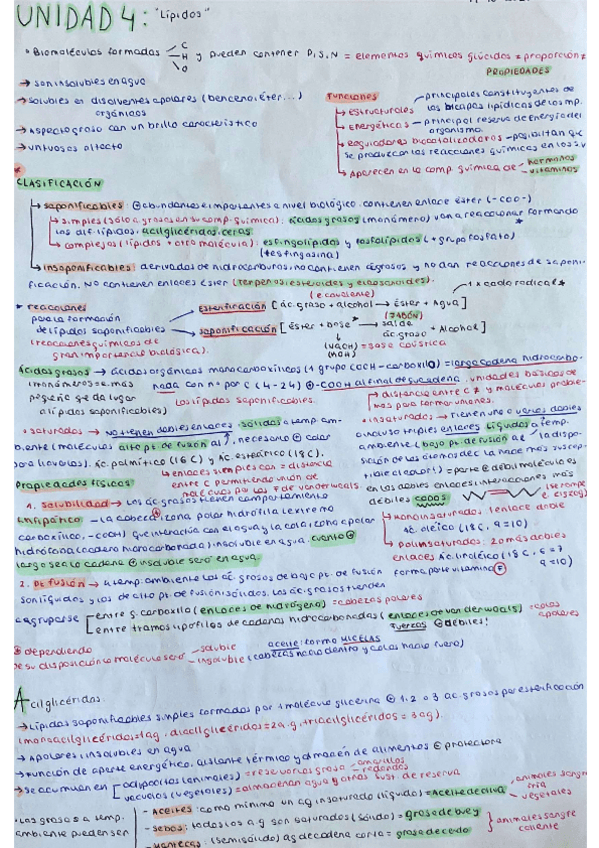 UNIDAD 4: "Lípidos"
• Biomoléculas formadas C H O y pueden contener P, S, N = elementos químicos glúcidos ≠ proporción ≠
PROPIEDADES
→ son insolubles en agua
→ solubles en disolventes apolares (benceno, éter...)
orgánicos
→ Aspecto graso con un brillo característico
→ untuosos al tacto
FUNCIONES
→ Estructurales - principales constituyentes de
las bicapas lipídicas de los mp.
→ Energéticas - principal reserva de energía del
organismo.
→ Reguladores biocatalizadores - posibilitan que
se produzcan las reacciones químicas en los sv
→ Aparecen en la comp química de - hormonas
- vitaminas
CLASIFICACIÓN
→ saponificables: ⊕ abundantes e importantes a nivel biológico. contienen enlace éster (-COO-)
→ simples (sólo a.grasos en su comp. química): ácidos grasos (monómero) van a reaccionar formando
los dif. lípidos. acilglicéridos, ceras
→ complejas (lípidos + otra molécula): esfingolípidos y fosfolípidos (+ grupo fosfato)
(+ esfingosina)
→ Insaponificables: derivados de hidrocarburos, no contienen ág grasos y no dan reacciones de saponi-
ficación. No contienen enlaces éster (terpenos, esteroides y eicosanoides).
★ reacciones
para la formación
de lípidos saponificables
(reacciones químicas de
gran importancia biológica).
→ esterificación [ác. graso + alcohol → éster + Agua]
(e covalente)
→ saponificación [éster + Base → sal de ác. graso + Alcohol]
(JABÓN)
(NaOH) = sosa cáustica
(KOH)
Ácidos grasos → ácidos orgánicos monocarboxílicos (1 grupo COOH - carboxilo) = larga cadena hidrocarbo-
(monómeros = e.más nada con nº par C (4-24) ⊕ -COOH al final de su cadena, unidades básicas de
pequeño que da lugar los lípidos saponificables.
a lípidos saponificables)
• saturados → no tienen dobles enlaces. sólidos a temp. am-
biente (moléculas alto pt. de fusión al ↑, necesario ⊕ calor
para llevarlos). Ác. palmítico (16 C) y Ác. esteárico (18 C).
↳ enlaces simples con = distancia
entre C permitiendo unión de
moléculas por las F de van der waals.
• insaturados → Tienen uno o varios dobles
o incluso triples enlaces. Líquidos a temp.
ambiente (bajo pt. de fusión
en los dobles enlaces, interacciones más
débiles CODOS
→ monoinsaturados: 1 enlace doble
ác. oleico (18 C, 9=10)
→ polinsaturados: 2 o más dobles
enlaces Ác. linoléico (18 C, 6=7
9=10)
forma parte vitamina F
Propiedades físicas
1. Solubilidad → Los ác. grasos tienen comportamiento
anfipático - La cabeza, zona polar hidrófila (extremo
carboxílico, -COOH) que interacciona con el agua y la cola, zona apolar
hidrófoba (cadena hidrocarbonada) insoluble en agua. cuanto ⊕
larga sea la cadena ⊕ insoluble será en agua.
2. Pt fusión → a temp. ambiente los ác. grasos de bajo pt. de fusión
son líquidos y los de alto pt. de fusión sólidos. Los ác. grasos tienden
a agruparse
entre g. carboxilo (enlaces de hidrógeno) = cabezas polares
entre tramos lipófilos de cadenas hidrocarbonadas (enlaces de van der waals) = colas
fuerzas ⊕ débiles! apolares
dependiendo
de su disposición la molécula será - soluble
- insoluble (cabezas hacia dentro y colas hacia fuera)
aceite: forma MICELAS
Acilglicéridos.
→ Lípidos saponificables simples formados por 1 molécula glicerina ⊕ 1, 2 o 3 ac. grasos por esterificación
(monoacilglicéridos = 1ag, diacilglicéridos = 2a.g, triacilglicéridos = 3ag).
→ Apolares, insolubles en agua
→ Función de aporte energético, aislante térmico y almacén de alimentos ⊕ protectora
→ se acumulan en
adipocitos (animales) = reservorios grasa - amarillos
- redondos
vacuolas (vegetales) = almacenan agua y otras sust. de reserva
• Las grasas a temp.
ambiente pueden ser
- Aceites: como mínimo un ag insaturado (líquido) = Aceite de oliva
animales sangre
fría
vegetales
- Sebos: todos los a.g son saturados (sólido) = grasa de buey
- Mantecas: (semisólido) ag de cadena corta = grasa de cerdo
animales sangre
caliente